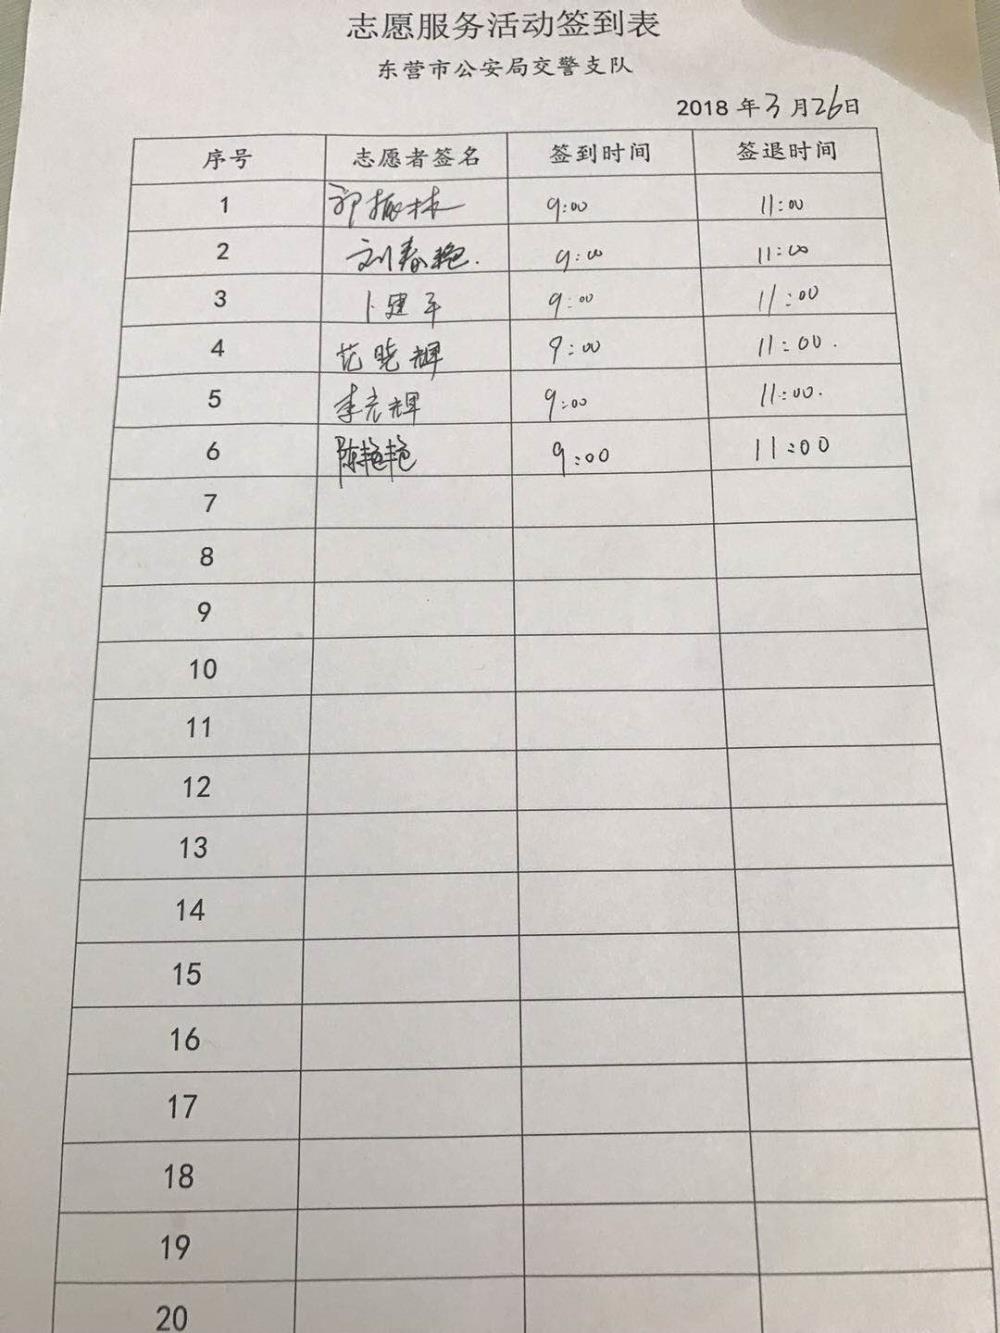 志愿服务活动签到表
东营市公安局交警支队
2018 年 3 月 26 日
序号 志愿者签名 签到时间 签退时间
1 9:00 11:00
2 刘春艳. 9:00 11:00
3 卜建平 9:00 11:00
4 范晓辉 9:00 11:00.
5 李彦辉 9:00 11:00.
6 陈艳艳 9:00 11:00
7
8
9
10
11
12
13
14
15
16
17
18
19
20